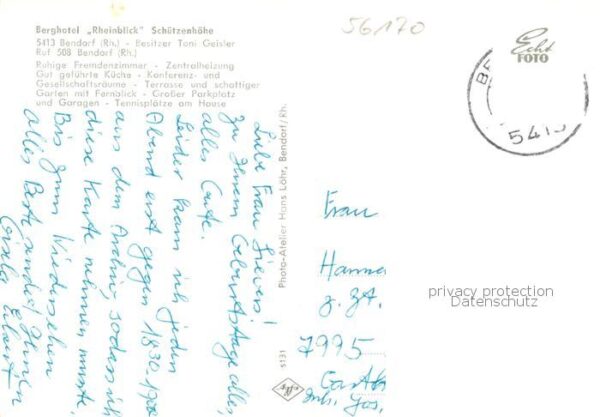 Berghotel „Rheinblick" Schützenhöhe
5413 Bendorf (Rh.) - Besitzer Toni Geisler
Ruf 508 Bendorf (Rh.)
Ruhige Fremdenzimmer - Zentralheizung
Gut geführte Küche - Konferenz- und
Gesellschaftsräume - Terrasse und schattiger
Garten mit Fernblick - Großer Parkplatz
und Garagen - Tennisplätze am Hause
56170
Echt
FOTO
BE
5413
Liebe Frau Sievers!
Zu Ihrem Geburtstage alles,
alles Gute.
Leider kam ich jeden
Abend erst gegen 1830-1900
aus dem Archiv, sodass ich
diese Karte nehmen musste.
Bis zum Wiedersehen
alles Beste sendet Ihnen
Gisela
Photo-Atelier Hans Löhr, Bendorf/Rh.
5131
Frau
Hanne
z. Zt.
7995
Inh. Jos.
privacy protection
Datenschutz